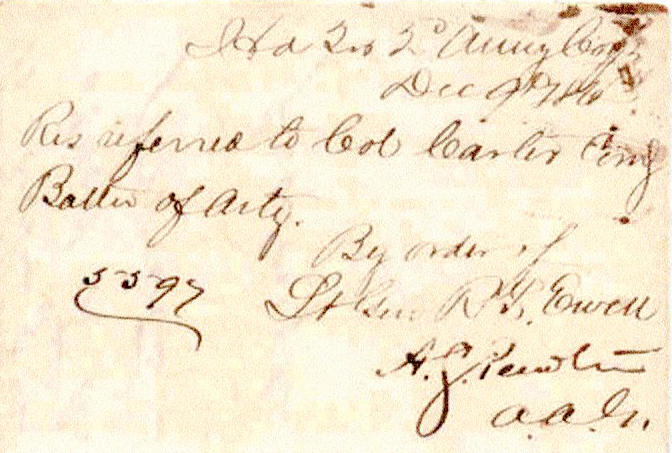 Hd Qrs 2d Army Corps
Dec 9th 186
Res referred to Col Carter Comg
Battn of Arty.
By order of
Lt Gen R. S. Ewell
5597
A. S. Pendleton
A. A. G.